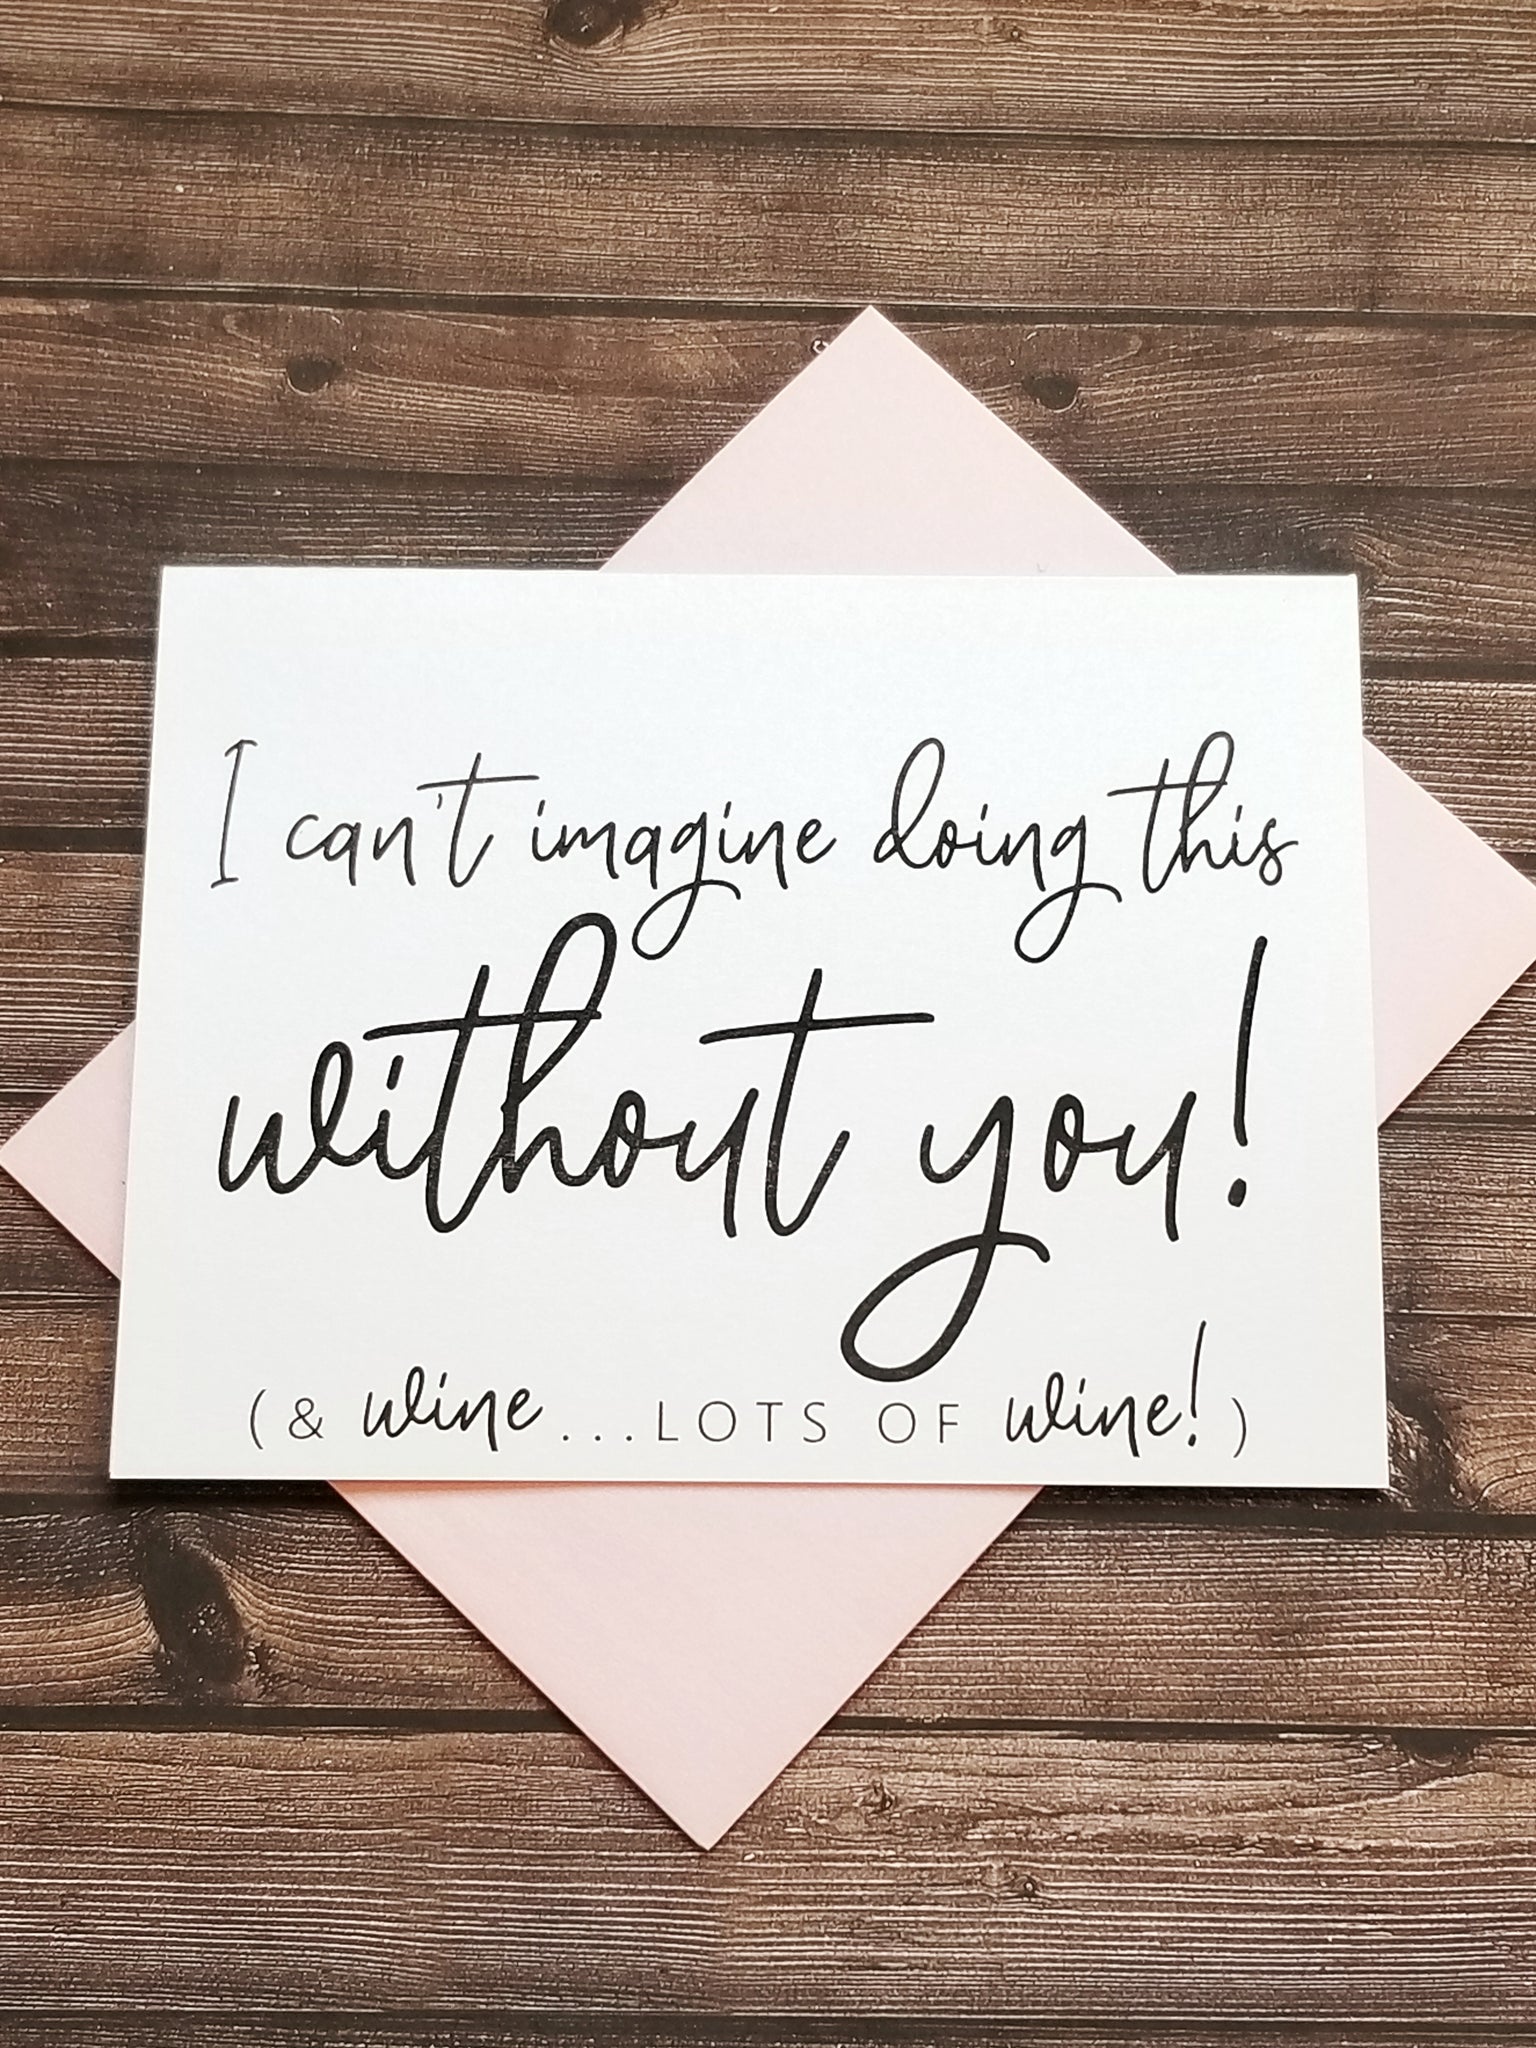 I can't imagine doing this
without you!
(& wine...LOTS OF wine!)